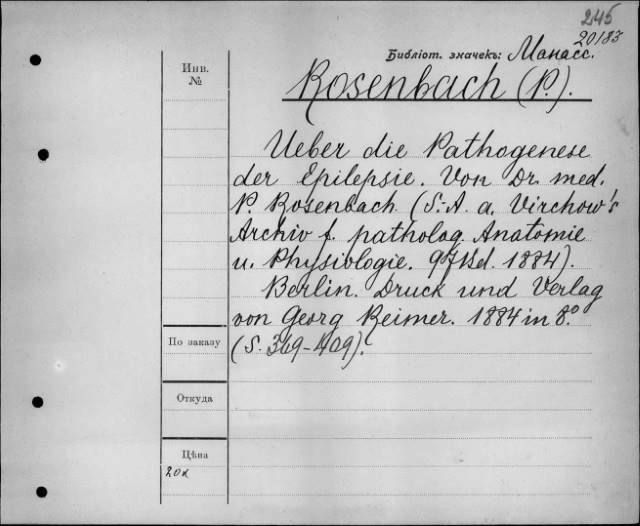 245
20183
Библіот. значекъ: Манасс.
Инв.
№
Rosenbach (P.).
Ueber die Pathogenese
der Epilepsie. Von Dr. med.
P. Rosenbach (S.-A. a. Virchow's
Archiv f. patholog. Anatomie
u. Physiologie. 97 Bd. 1884).
Berlin. Druck und Verlag
von Georg Reimer. 1884 in 8.°
(S. 369-409).
По заказу
Откуда
Цѣна
20к